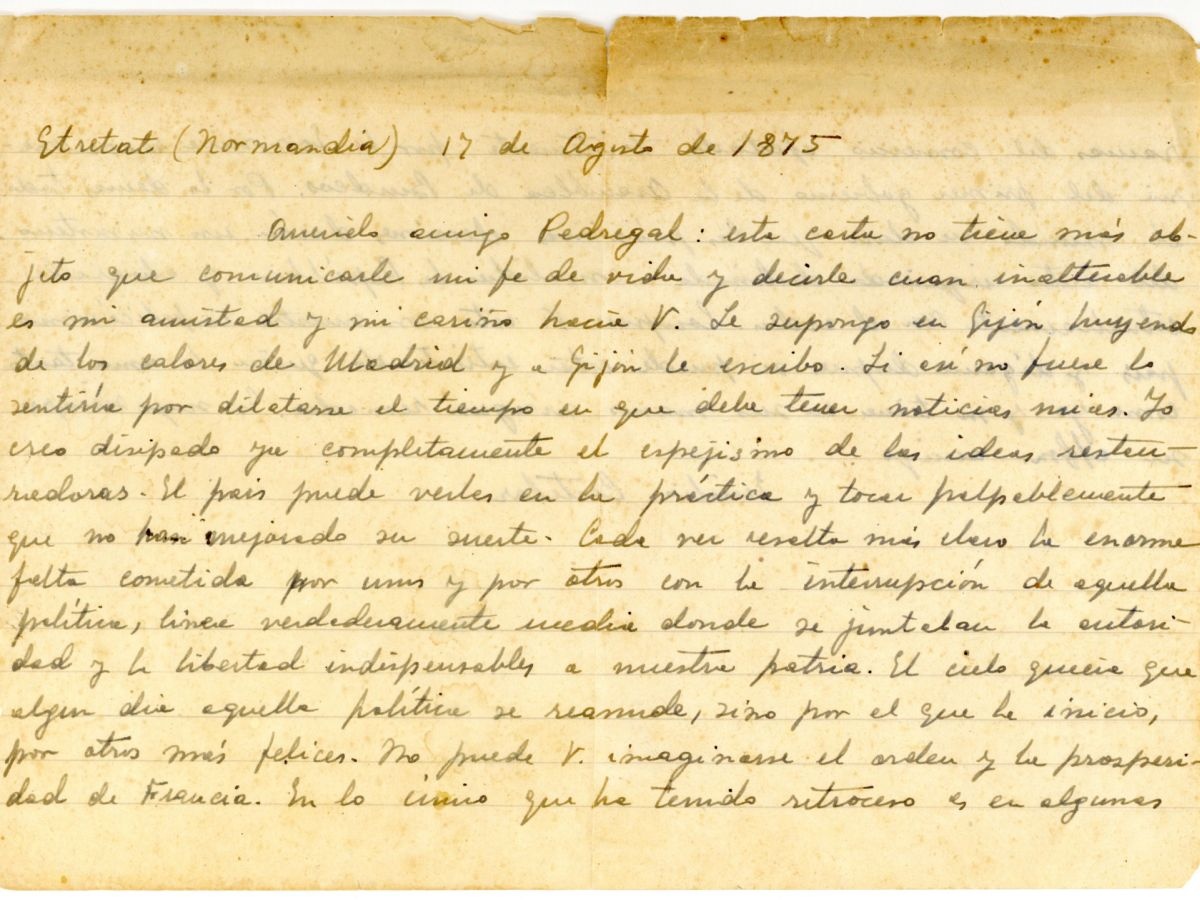 Etretat (Normandia) 17 de Agosto de 1875
Querido amigo Pedregal: esta carta no tiene más ob-
jeto que comunicarle mi fe de vida y decirle cuan inalterable
es mi amistad y mi cariño hacia V. Le supongo en Gijón huyendo
de los calores de Madrid y a Gijón le escribo. Si así no fuese lo
sentiría por dilatarse el tiempo en que debe tener noticias mias. Yo
creo disipado ya completamente el espejismo de las ideas restau-
radoras. El pais puede verlas en la práctica y tocar palpablemente
que no han mejorado su suerte. Cada vez resalta más claro la enorme
falta cometida por unos y por otros con la interrupción de aquella
política, linea verdaderamente media donde se juntaban la autori-
dad y la libertad indispensables a nuestra patria. El cielo quiera que
algun dia aquella política se reanude, sino por el que la inicio,
por otros más felices. No puede V. imaginarse el orden y la prosperi-
dad de Francia. En lo único que ha tenido retroceso es en algunas